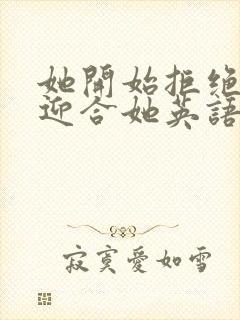 她開始拒絕
迎合她英語
寂寞愛如雪